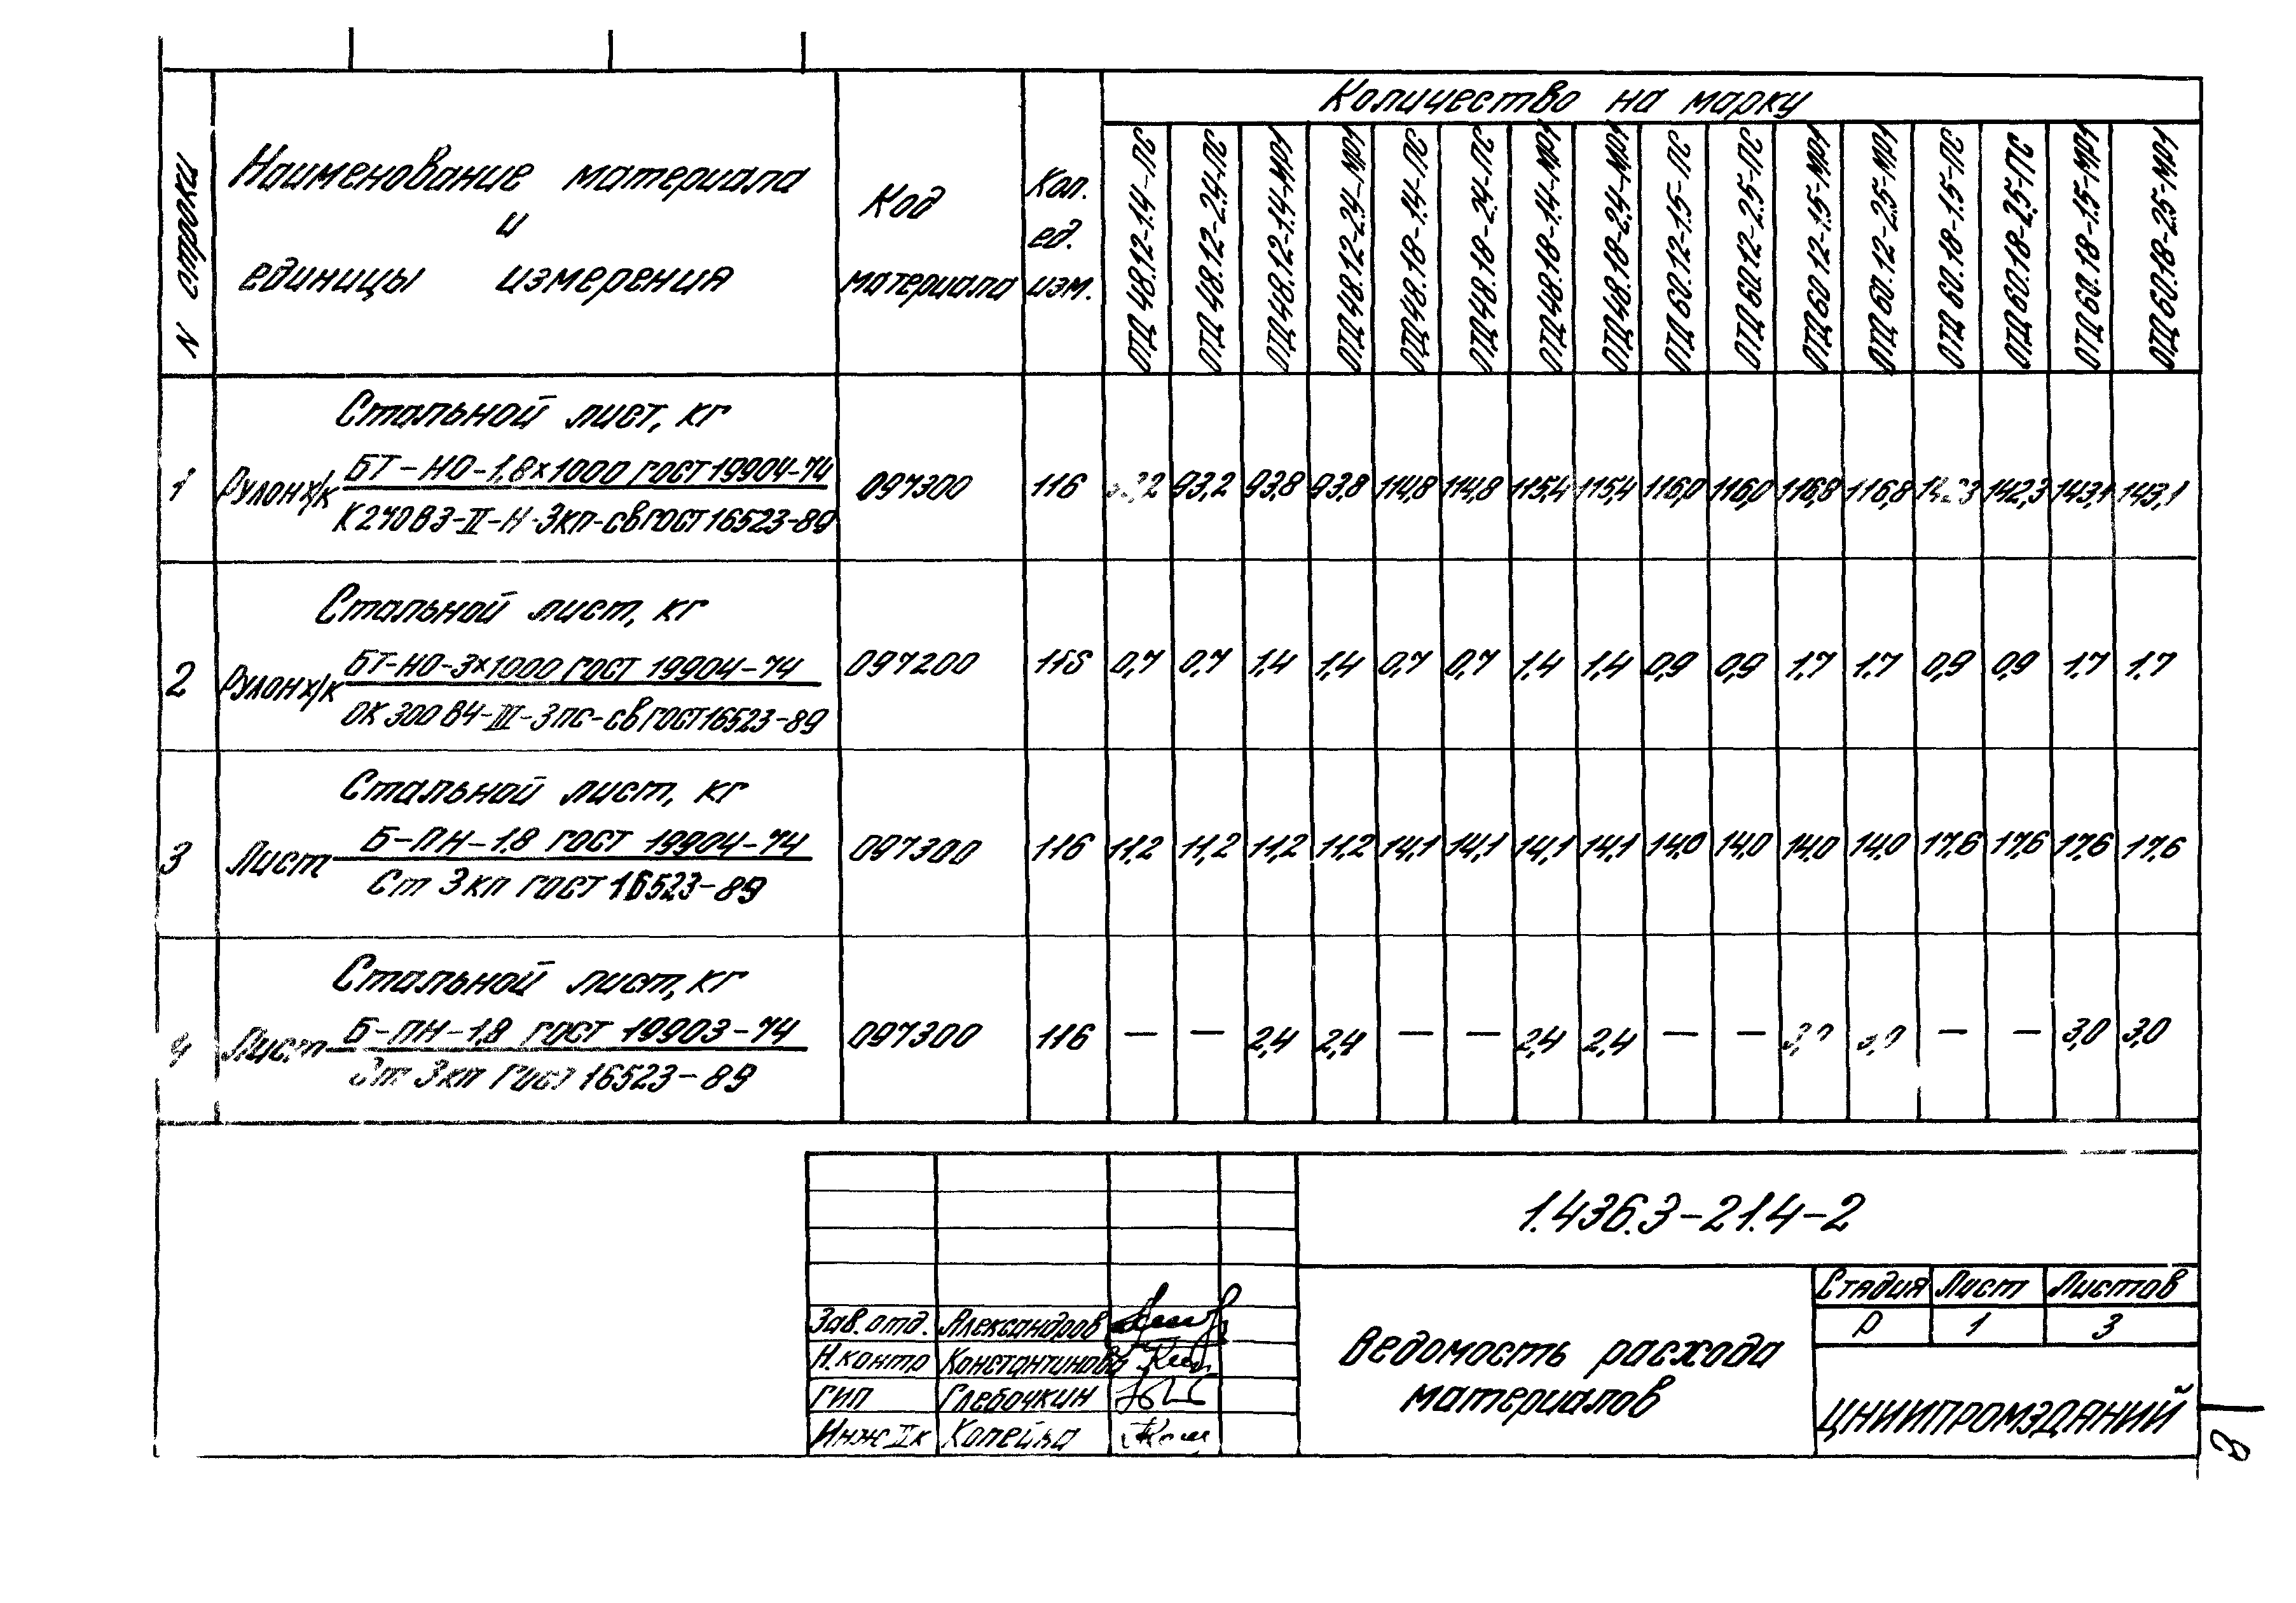 Количество на марку
N строки
Наименование материала
и
единицы измерения
Код
материала
Кол.
ед.
изм.
ОТД 48.12-1.4-ПС
ОТД 48.12-2.4-ПС
ОТД 48.12-1.4-МР1
ОТД 48.12-2.4-МР1
ОТД 48.18-1.4-ПС
ОТД 48.18-2.4-ПС
ОТД 48.18-1.4-МР1
ОТД 48.18-2.4-МР1
ОТД 60.12-1.5-ПС
ОТД 60.12-2.5-ПС
ОТД 60.12-1.5-МР1
ОТД 60.12-2.5-МР1
ОТД 60.18-1.5-ПС
ОТД 60.18-2.5-ПС
ОТД 60.18-1.5-МР1
ОТД 60.18-2.5-МР1
Стальной лист, кг
1 Рулон х/к БТ-НО-1,8×1000 ГОСТ 19904-74 097300 116 93,2 93,8 93,8 114,8 114,8 115,4 115,4 116,0 116,0 116,8 116,8 142,3 143,1 143,1
К 270 В 3-II-Н-3кп-св ГОСТ 16523-89
Стальной лист, кг
2 Рулон х/к БТ-НО-3×1000 ГОСТ 19904-74 097200 116 0,7 0,7 1,4 1,4 0,7 0,7 1,4 1,4 0,9 0,9 1,7 1,7 0,9 0,9 1,7 1,7
ОК 300 В4-III-3пс-св ГОСТ 16523-89
Стальной лист, кг
3 Лист Б-ПН-1.8 ГОСТ 19904-74 097300 116 11,2 11,2 11,2 11,2 14,1 14,1 14,1 14,1 14,0 14,0 14,0 14,0 17,6 17,6 17,6 17,6
Ст 3кп ГОСТ 16523-89
Стальной лист, кг
4 Лист Б-ПН-1,8 ГОСТ 19903-74 097300 116 — — 2,4 2,4 — — 2,4 2,4 — — — — 3,0 3,0
Ст 3кп ГОСТ 16523-89
1.436.3-21.4-2
Зав. отд. Александров
Н. контр Константинова
ГИП Глебочкин
Инж IIк Копейка
Ведомость расхода
материалов
Стадия Лист Листов
Р 1 3
ЦНИИПРОМЗДАНИЙ
3